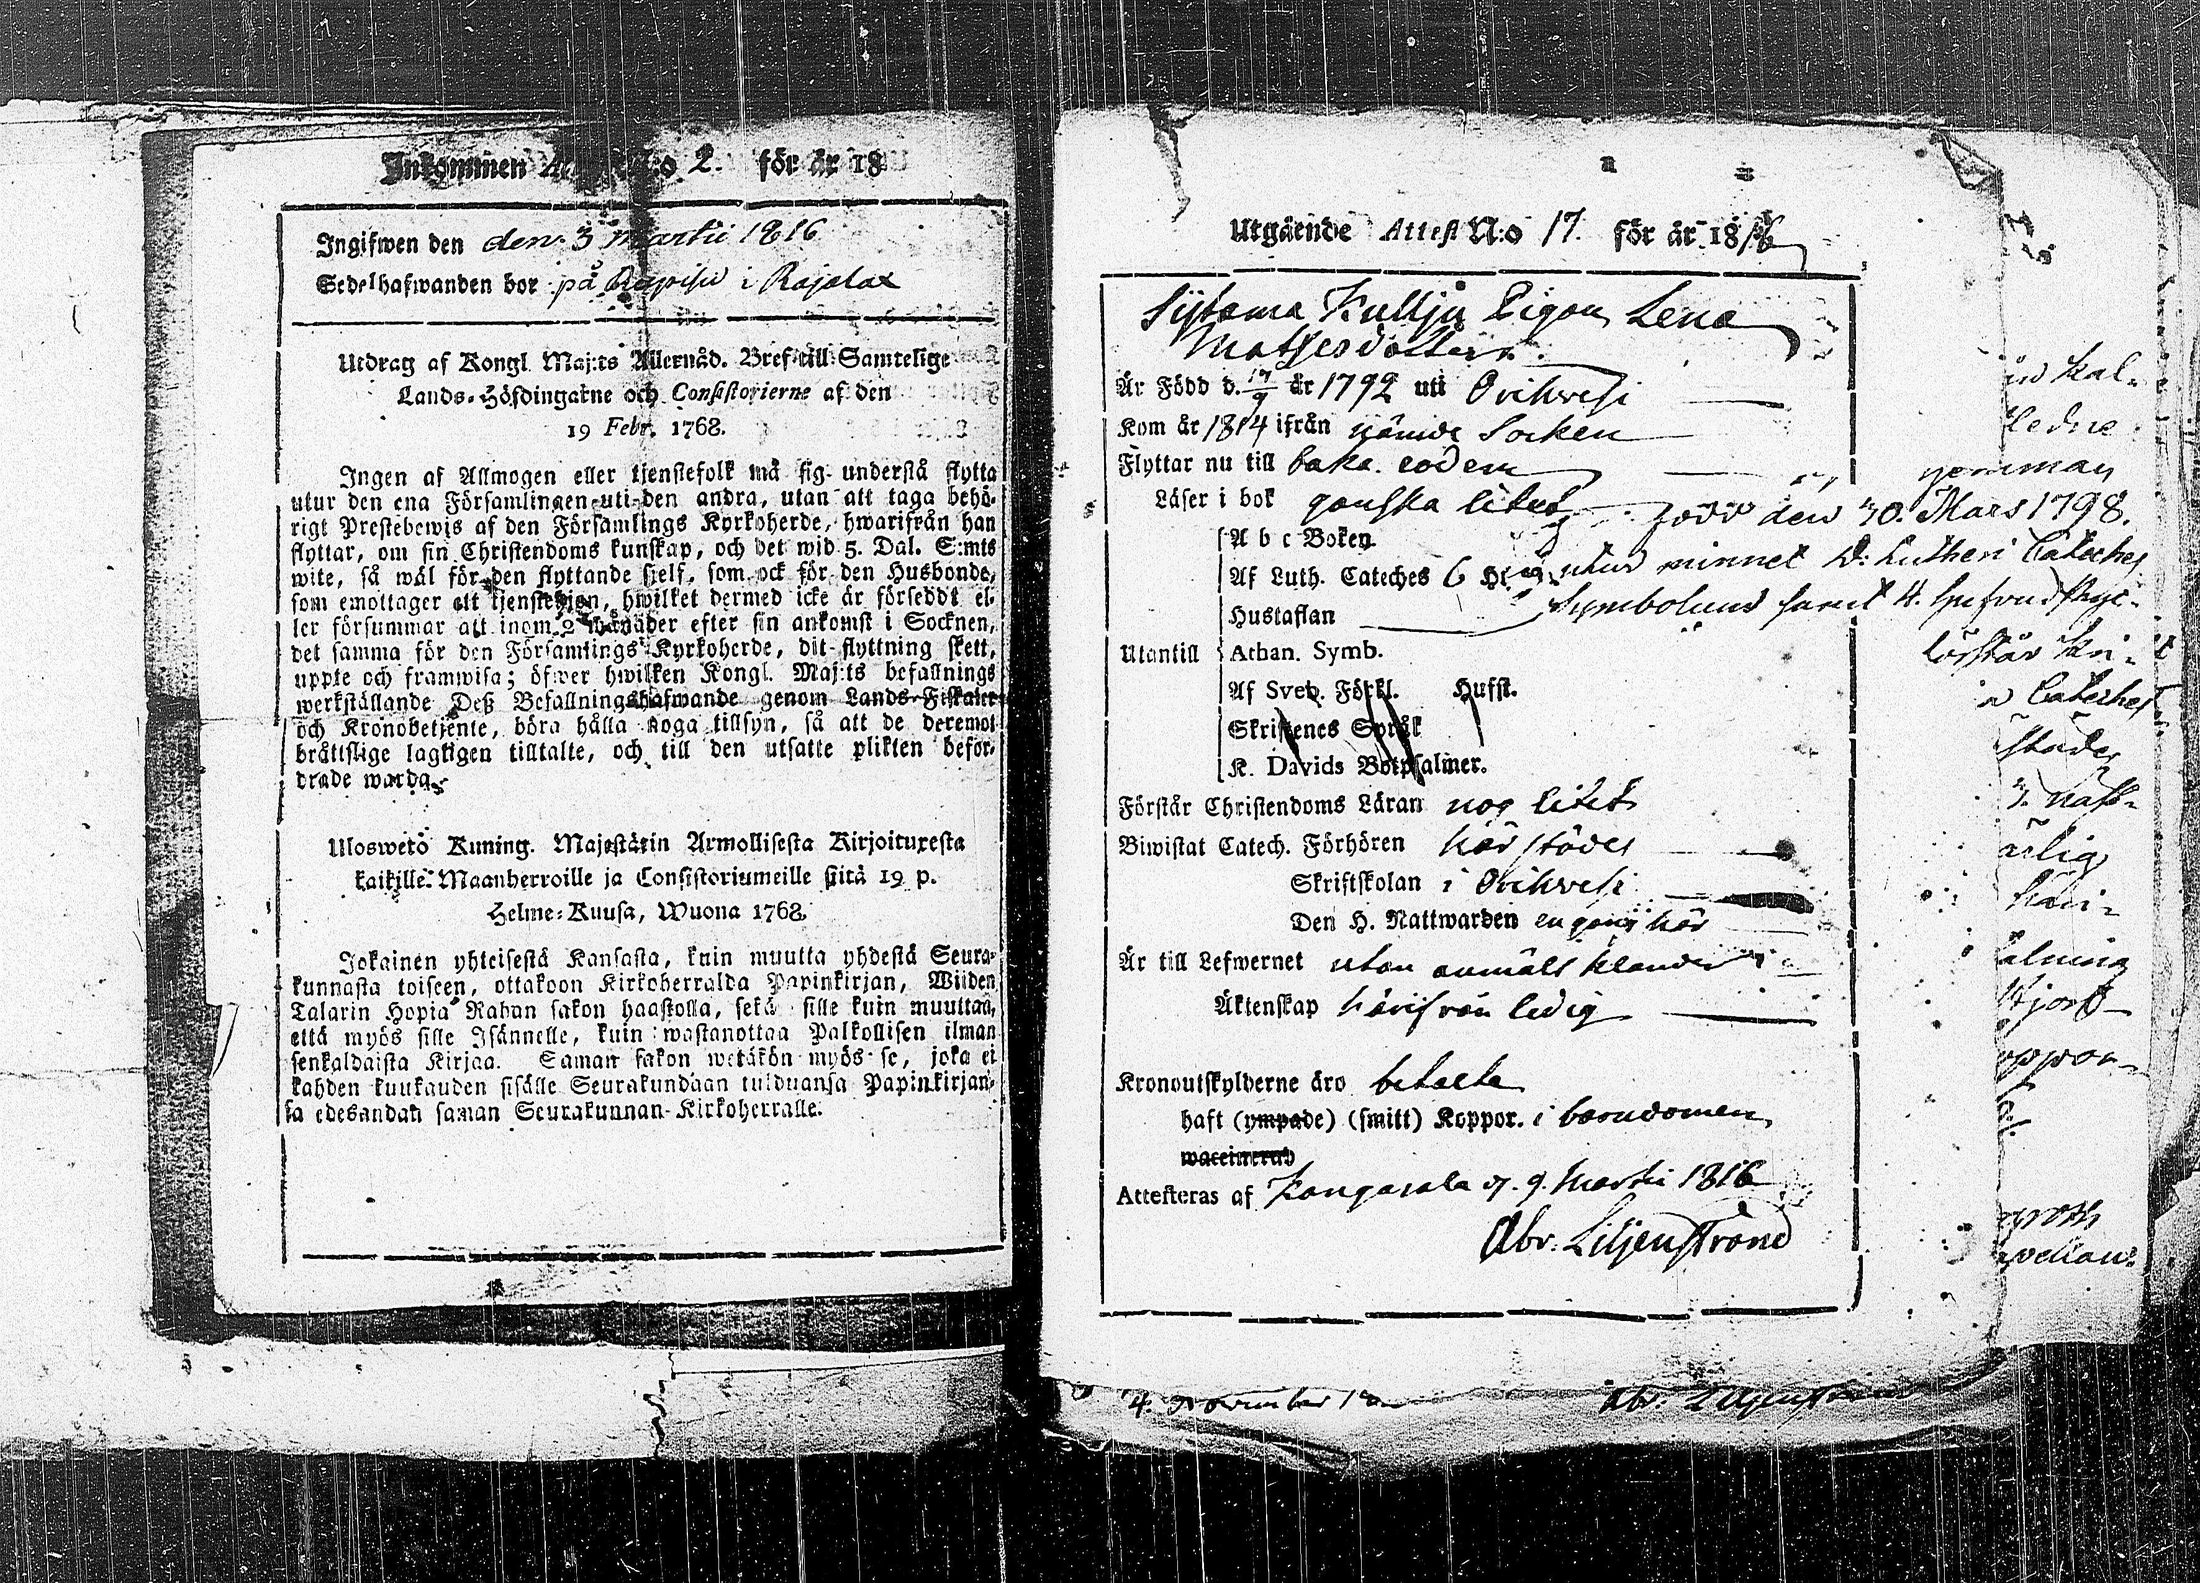 Inkommen N:o 2. för år 18
Ingifwen den den 3 Martii 1816
Sedelhafwanden bor på i Rajalax
Utdrag af Kongl. Maj:ts Allernåd. Bref till Samtelige
Lands-Höfdingarne och Consistorierne af den
19 Febr. 1768.
Ingen af Allmogen eller tjenstefolk må sig understå flytta
utur den ena Församlingen uti den andra, utan att taga behö-
rigt Prestebewis af den Församlings Kyrkoherde, hwarifrån han
flyttar, om sin Christendoms kunskap, och det wid 5. Dal. S:mts
wite, så wäl för den flyttande sjelf, som ock för den Husbonde,
som emottager ett tjenstehjon, hwilket dermed icke är försedt el-
ler försummar att inom 2 månader efter sin ankomst i Socknen,
det samma för den Församlings Kyrkoherde, dit flyttning skett,
uppte och framwisa; öfwer hwilken Kongl. Maj:ts befallnings
werkställande Deß Befallningshafwande genom Lands-Fiskaler
och Kronobetjente, böra hålla noga tillsyn, så att de deremot
bråttslige lagligen tilltalte, och till den utsatte plikten befor-
drade warda.
Uloswetö Kuning. Majestätin Armollisesta Kirjoituxesta
kaikille Maanherroille ja Consistoriumeille siitä 19 p.
Helme-Kuusa, Wuona 1768.
Jokainen yhteisestä Kansasta, kuin muutta yhdestä Seura-
kunnasta toiseen, ottakoon Kirkoherralda Papinkirjan, Wiiden
Talarin Hopia Rahan sakon haastolla, sekä sille kuin muuttaa,
että myös sille Isännelle, kuin wastanottaa Palkollisen ilman
senkaldaista Kirjaa. Saman sakon wetäkön myös se, joka ei
kahden kuukauden sisälle Seurakundaan tulduansa Papinkirjan-
sa edesandan saman Seurakunnan Kirkoherralle.
Utgående Attest N:o 17. för år 1816
Kullju Pigan Lena
Matsesdotter
Är Född d. 17/9 år 1792 uti Orihvesi
Kom år 1814 ifrån nämde Socken
Flyttar nu till baka eodem
Läser i bok ganska litet
A b c Boken
Af Luth. Cateches 6 H.
Hustaflan
Utantill Athan. Symb.
Af Sveb. Förkl. Hufst.
Skriftenes Språk
K. Davids Botpsalmer.
Förstår Christendoms Läran nog litet
Biwistat Catech. Förhören här städes
Skriftskolan i Orihvesi
Den H. Nattwarden en gång här
Är till Lefwernet utan anmält klander
Äktenskap härifrån ledig
Kronoutskylderne äro betalta
haft (ympade) (smitt) Koppor. i barndomen
Attesteras af Kangasala d. 9. Martii 1816
Abr: Liljenstrand
Kal-
född den 30. Mars 1798.
utur minnet D: Lutheri Cateches
Symbolum samt 4. Hufvudstyc-
förstår
Cateches
städes
Natt-
ärlig
4. November
Abr: Liljenstrand